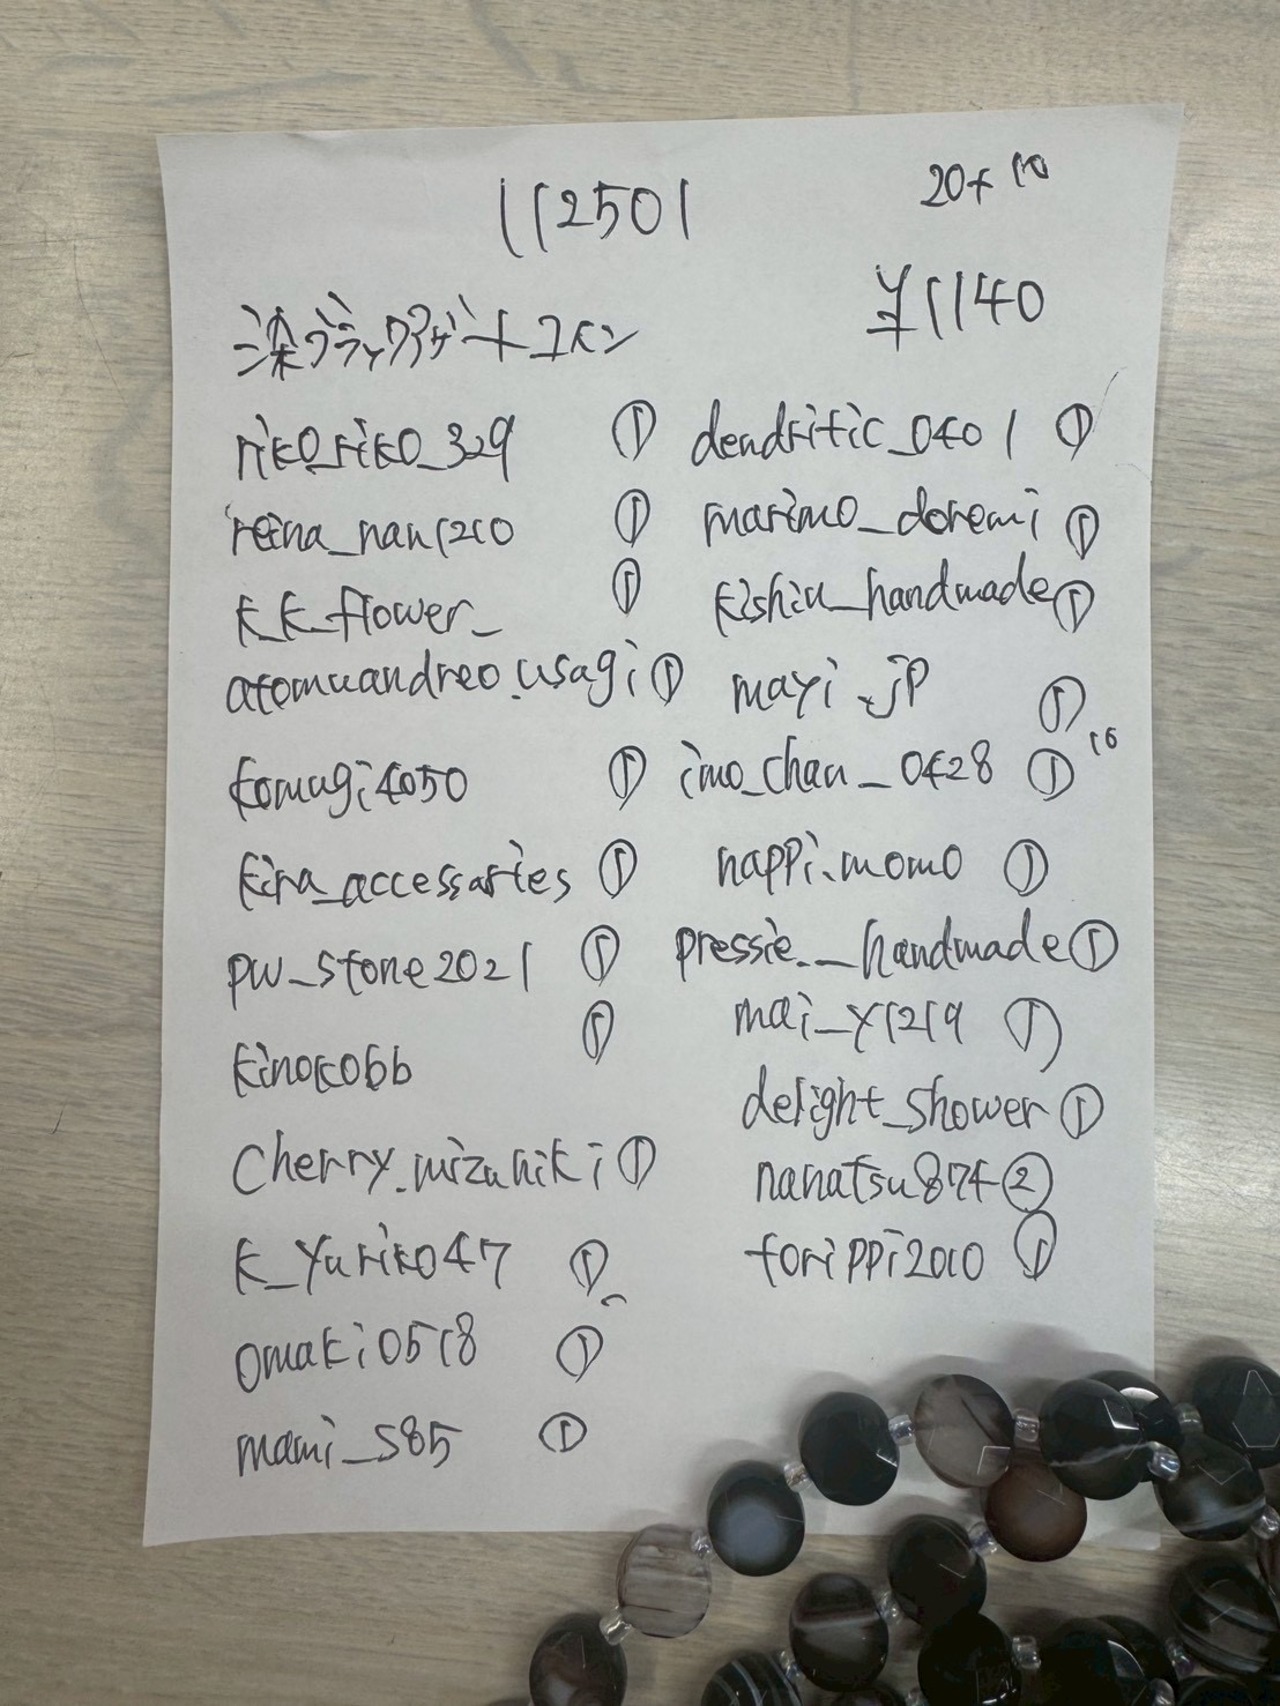 112501
20+10
¥1140
染ブラックアゲートコイン
riko_riko_329 ①
reina_nan1210 ①
k_k_flower_ ①
atomuandreo.usagi ①
komugi4050 ①
kira_accessaries ①
pw_stone2021 ①
kinoko66 ①
cherry.mizuhiki ①
k_yuriko47 ①
omaki0518 ①
mami_s85 ①
dendritic_0401 ①
marimo_doremi ①
kishiu_handmade ①
mayi.jp ①
imo_chan_0428 ①
nappi.momo ①
pressie.__handmade ①
mai_y1219 ①
delight_shower ①
nanatsu874 ②
torippi2010 ①